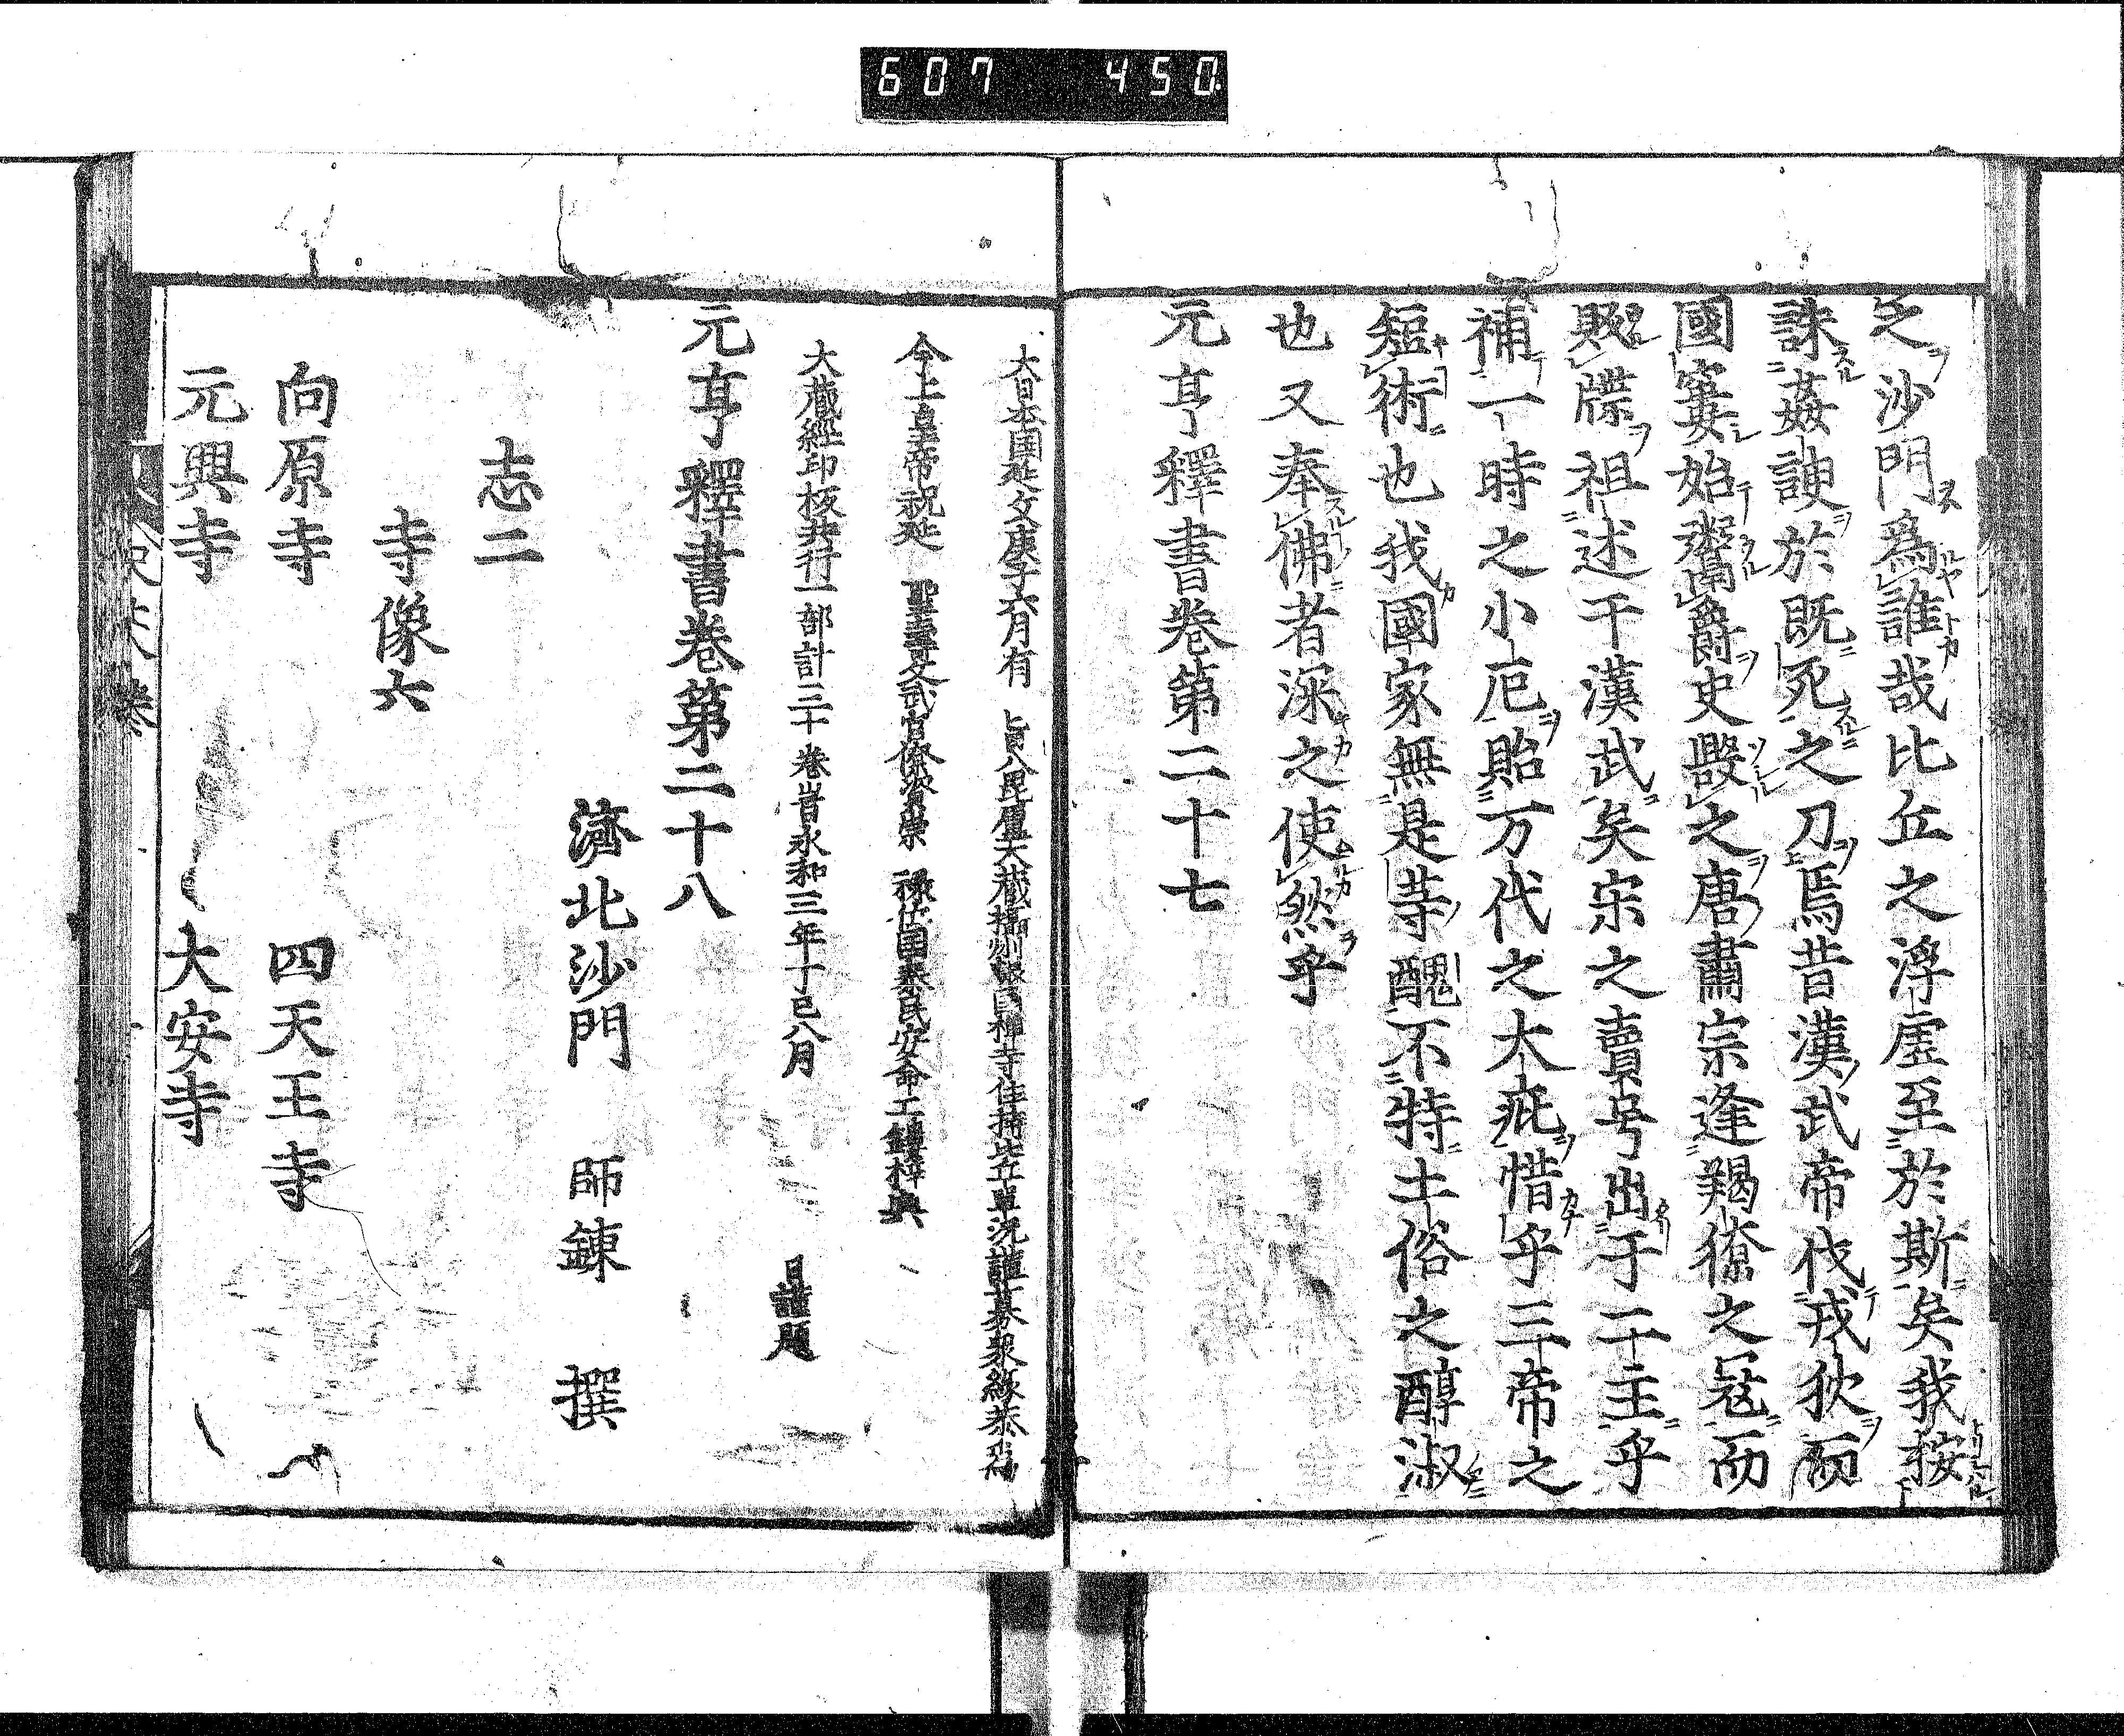 607 450
之沙門爲誰哉比丘之浮虛至於斯矣我按
誅姦諛於既死之刀焉昔漢武帝伐戎狄而
國窶始鬻爵史譏之唐肅宗逢羯獠之寇而
販牒祖述于漢武矣宋之賣号出于二主乎
補一時之小厄貽万代之大疵惜乎三帝之
短術也我國家無是等醜不特土俗之醇淑
也又奉佛者深之使然乎
元亨釋書卷第二十七
大日本国延文庚子六月有 旨入毘盧大藏攝州報国禅寺住持比丘單況謹募衆緣恭爲
今上皇帝祝延 聖壽文武官僚資崇 禄位国泰民安命工鏤梓與
大藏經印板共行一部計三十卷旹永和三年丁巳八月 日謹題
元亨釋書卷第二十八
濟北沙門 師錬 撰
志二
寺像六
向原寺 四天王寺
元興寺 大安寺